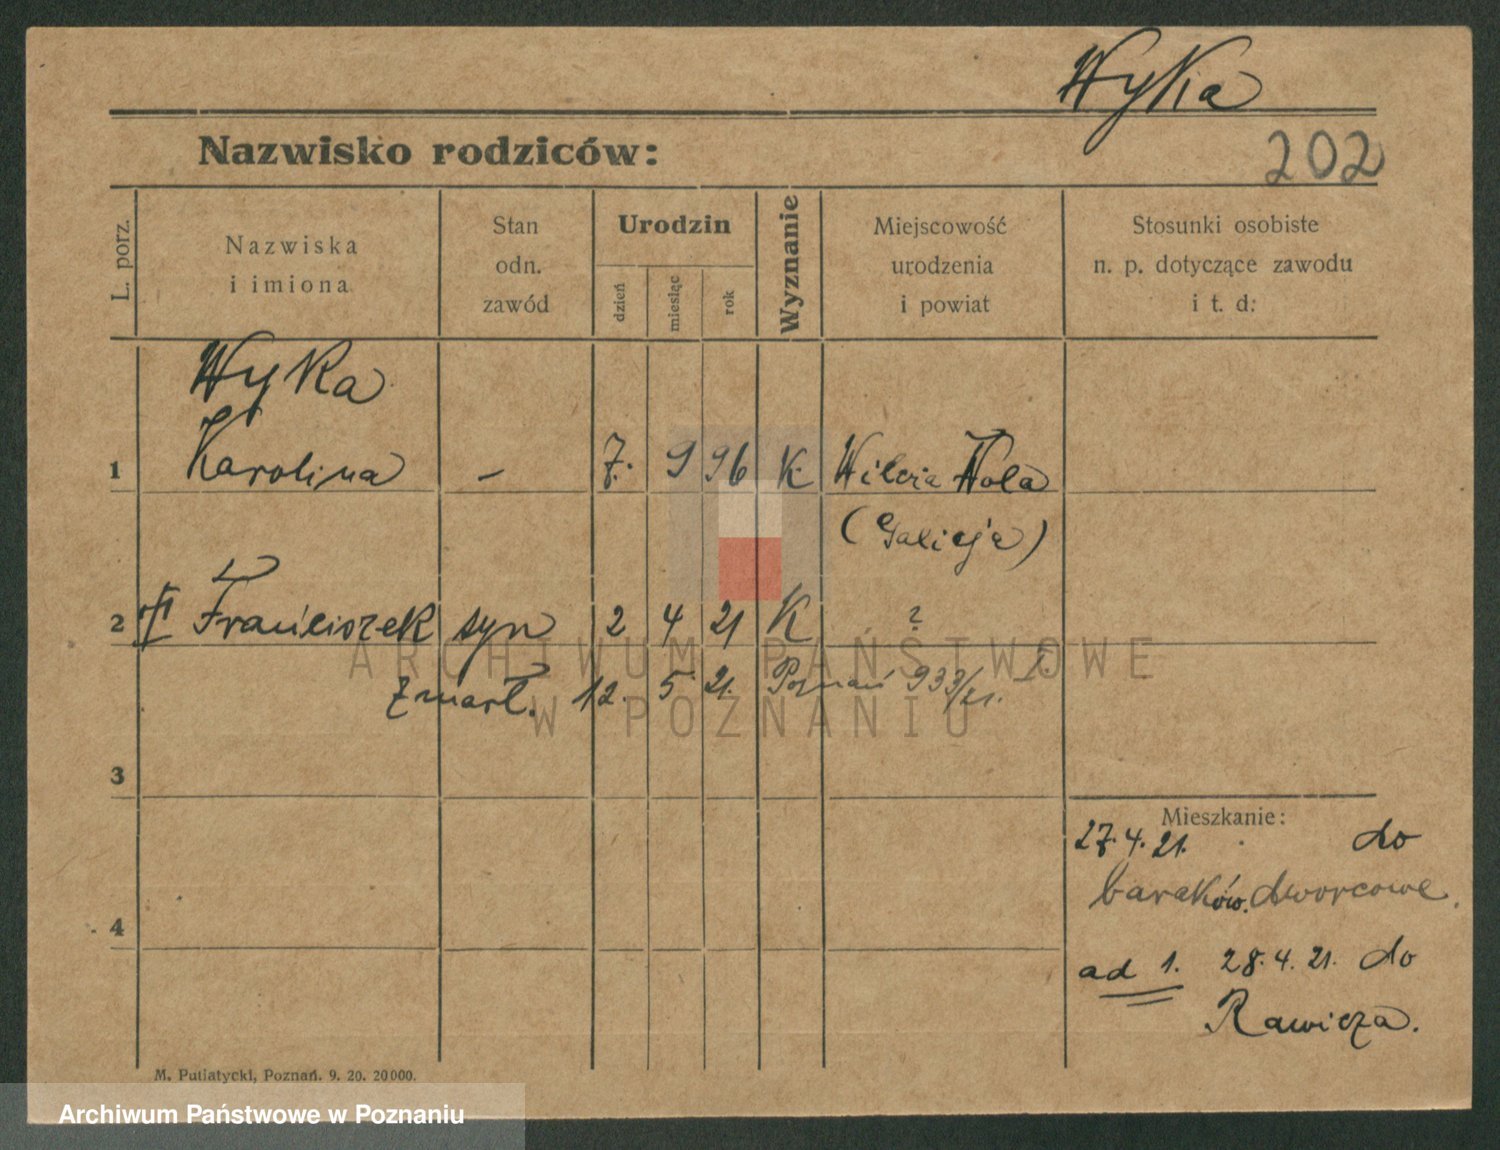 Wyka
Nazwisko rodziców:
202
L. porz.
Nazwiska
i imiona
Stan
odn.
zawód
Urodzin
dzień
miesiąc
rok
Wyznanie
Miejscowość
urodzenia
i powiat
Stosunki osobiste
n. p. dotyczące zawodu
i t. d:
Wyka
1 Karolina - 7. 9 96 K. Wilcia Wola
(Galicja)
2 Franciszek syn 2 4 21 K ?
zmarł. 12. 5. 21. Poznań 933/21.
ARCHIWUM PAŃSTWOWE
W POZNANIU
3
Mieszkanie:
27.4.21. do
baraków. dworcowe.
4
ad 1. 28.4.21. do
Rawicza.
M. Putiatycki, Poznań. 9. 20. 20000.
Archiwum Państwowe w Poznaniu